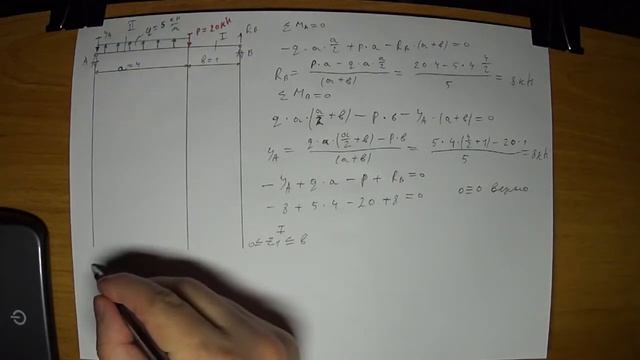 II q = 5 кН/м P = 20кН RB
yA I
A B
a = 4 в = 1
Σ MA = 0
−q·a·a/2 + P·a − RB·(a+в) = 0
RB = (P·a − q·a·a/2)/(a+в) = (20·4 − 5·4·4/2)/5 = 8 кН
Σ MB = 0
q·a·(a/2 + в) − P·в − yA·(a+в) = 0
yA = (q·a·(a/2 + в) − P·в)/(a+в) = (5·4·(4/2 + 1) − 20·1)/5 = 8кН
− yA + q·a − P + RB = 0
− 8 + 5·4 − 20 + 8 = 0 0 ≡ 0 верно
I
0 ≤ z1 ≤ в